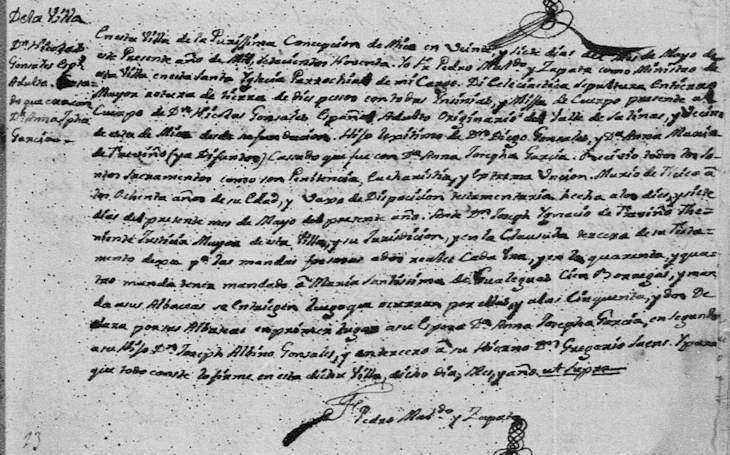 De la Villa
Dn. Nicolas
Gonsales Espl.
Adulto Casa-
do que era con
Da. Anna Jpha
Garcia
En esta Villa de la Purissima Concepcion de Mier en Veinte, y Siete dias del Mes de Mayo de
este Presente año de Mil, setecientos Noventa. Yo Fr. Pedro Maldo. y Zapata como Ministro de
esta Villa en esta Santa Iglecia Parrochial de mi Cargo. Di Ecleciastica Sepultura Entierro
Mayor rotura de tierra de dies pesos con todas Insinias, y Missa de Cuerpo presente al
Cuerpo de Dn. Nicolas Gonsales Español Adulto Originario del Valle de Salinas, y Vecino
de esta de Mier desde su fundacion. Hijo Lexitimo de Dn. Diego Gonsales, y Da. Anna Maria
de Treviño (ya Difuntos) Cassado que fue con Da. Anna Josepha Garcia. Recivio todos los San-
tos Sacramentos como son Penitencia, Eucharistia, y Extrema Uncion. Murio de
los Ochenta años de su Edad, y Vaxo de Disposicion testamentaria hecha a los dies, y siete
dias del presente mes de Mayo del presente año. Ante Dn. Joseph Ignacio de Treviño The-
niente Justicia Mayor de esta Villa, y su Jurisdicion, y en la Clausula tercera de su Testa-
mento dexa pa. las mandas forsosas a dos reales Cada Una, y en la quarenta, y qua-
tro manda tener mandado â Maria Santissima de Gualeguas Cien Borregas, y man-
da a sus Albaceas se entriegen luego que ocurran por ellas, y a las Cinquenta, y dos De
clara por sus Albaceas en primer lugar a su Esposa Da. Anna Josepha Garcia, en segundo
a su Hijo Dn. Joseph Albino Gonsales, y en tercero â su Hierno Dn. Gregorio Saens. Y para
que todo conste lo firme en esta dicha Villa, dicho dia, Mes, y año ut supra
Fr. Pedro Maldo. y Zapata
23